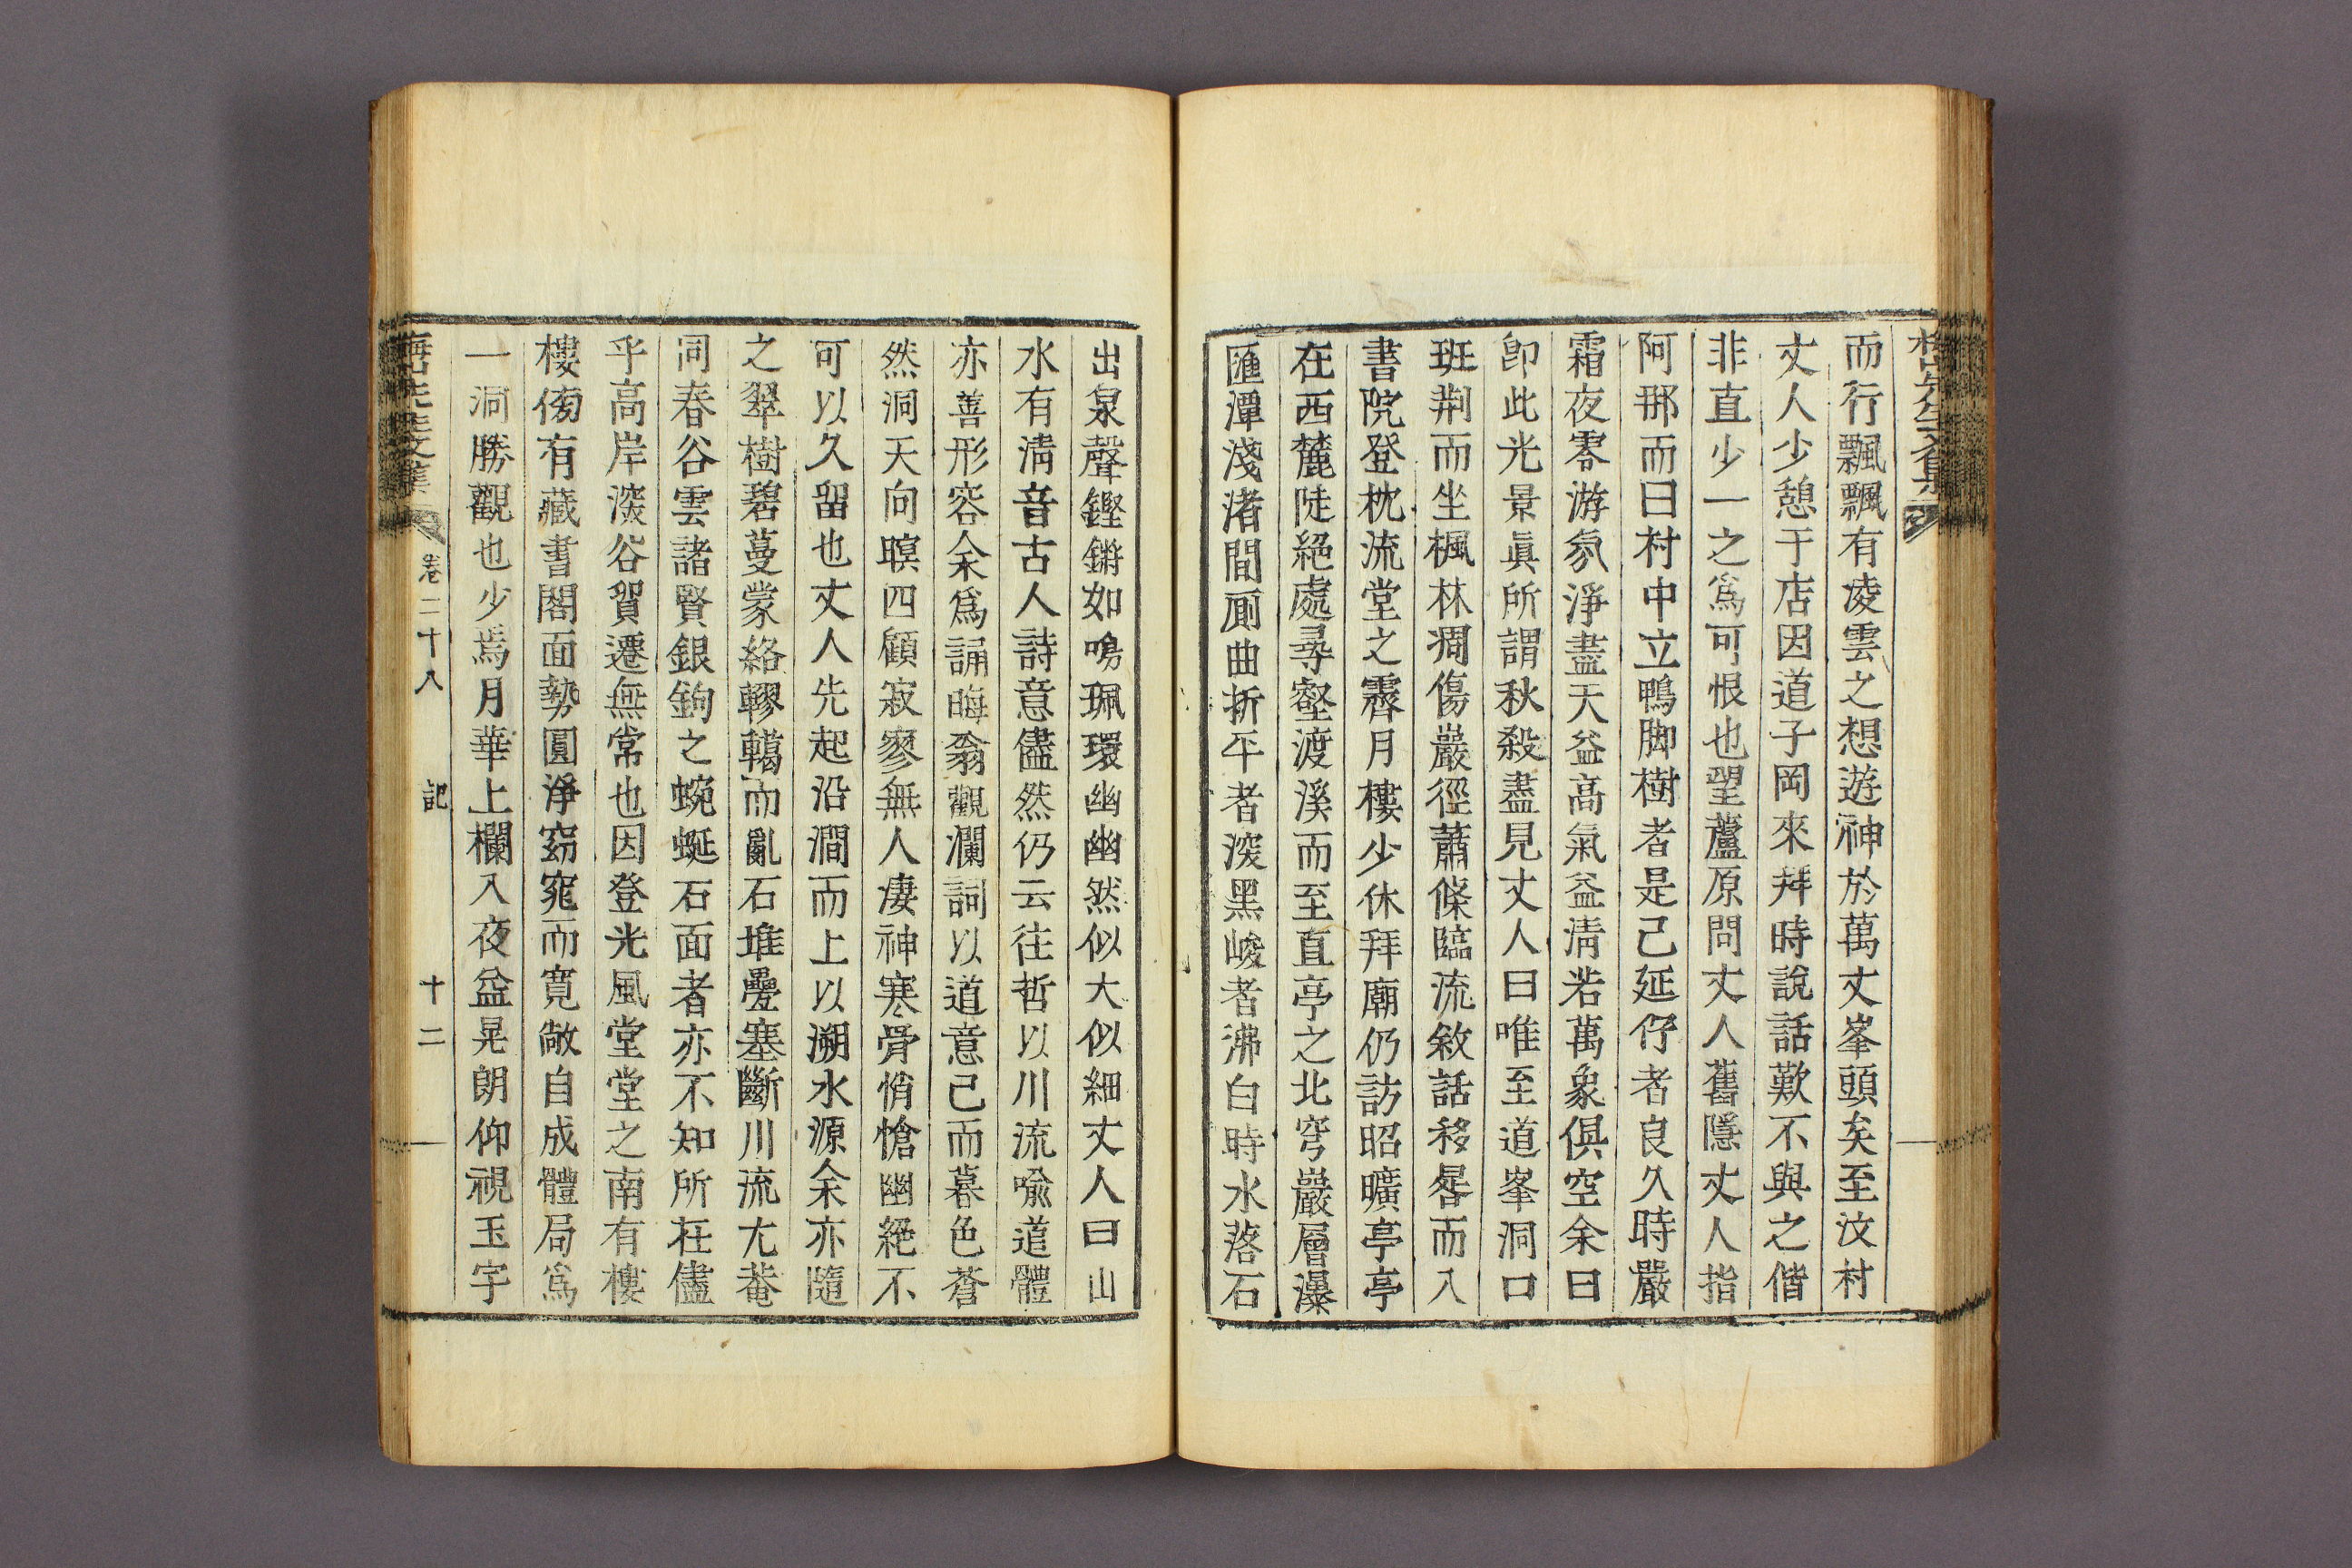 而行飄飄有凌雲之想遊神於萬丈峯頭矣至汶村
丈人少憩于店因道子岡來拜時說話歎不與之偕
非直少一之爲可恨也望蘆原問丈人舊隱丈人指
阿那而曰村中立鴨脚樹者是已延佇者良久時嚴
霜夜零游氛淨盡天益高氣益淸若萬象俱空余曰
卽此光景眞所謂秋殺盡見丈人曰唯至道峯洞口
班荆而坐楓林凋傷巖徑蕭條臨流敘話移晷而入
書院登枕流堂之霽月樓少休拜廟仍訪昭曠亭亭
在西麓陡絶處尋壑渡溪而至直亭之北穹巖層瀑
匯潭淺渚間厠曲折平者深黑峻者沸白時水落石
出泉聲鏗鏘如鳴珮環幽幽然似大似細丈人曰山
水有淸音古人詩意儘然仍云往哲以川流喩道體
亦善形容余爲誦晦翁觀瀾詞以道意已而暮色蒼
然洞天向暝四顧寂寥無人凄神寒骨悄愴幽絶不
可以久留也丈人先起沿澗而上以溯水源余亦隨
之翠樹碧蔓蒙絡轇轕而亂石堆疊塞斷川流尤菴
同春谷雲諸賢銀鉤之蜿蜒石面者亦不知所在儘
乎高岸深谷貿遷無常也因登光風堂堂之南有樓
樓傍有藏書閣面勢圓淨窈窕而寬敞自成體局爲
一洞勝觀也少焉月華上欄入夜益晃朗仰視玉宇
梅山先生文集 卷二十八 記 十二